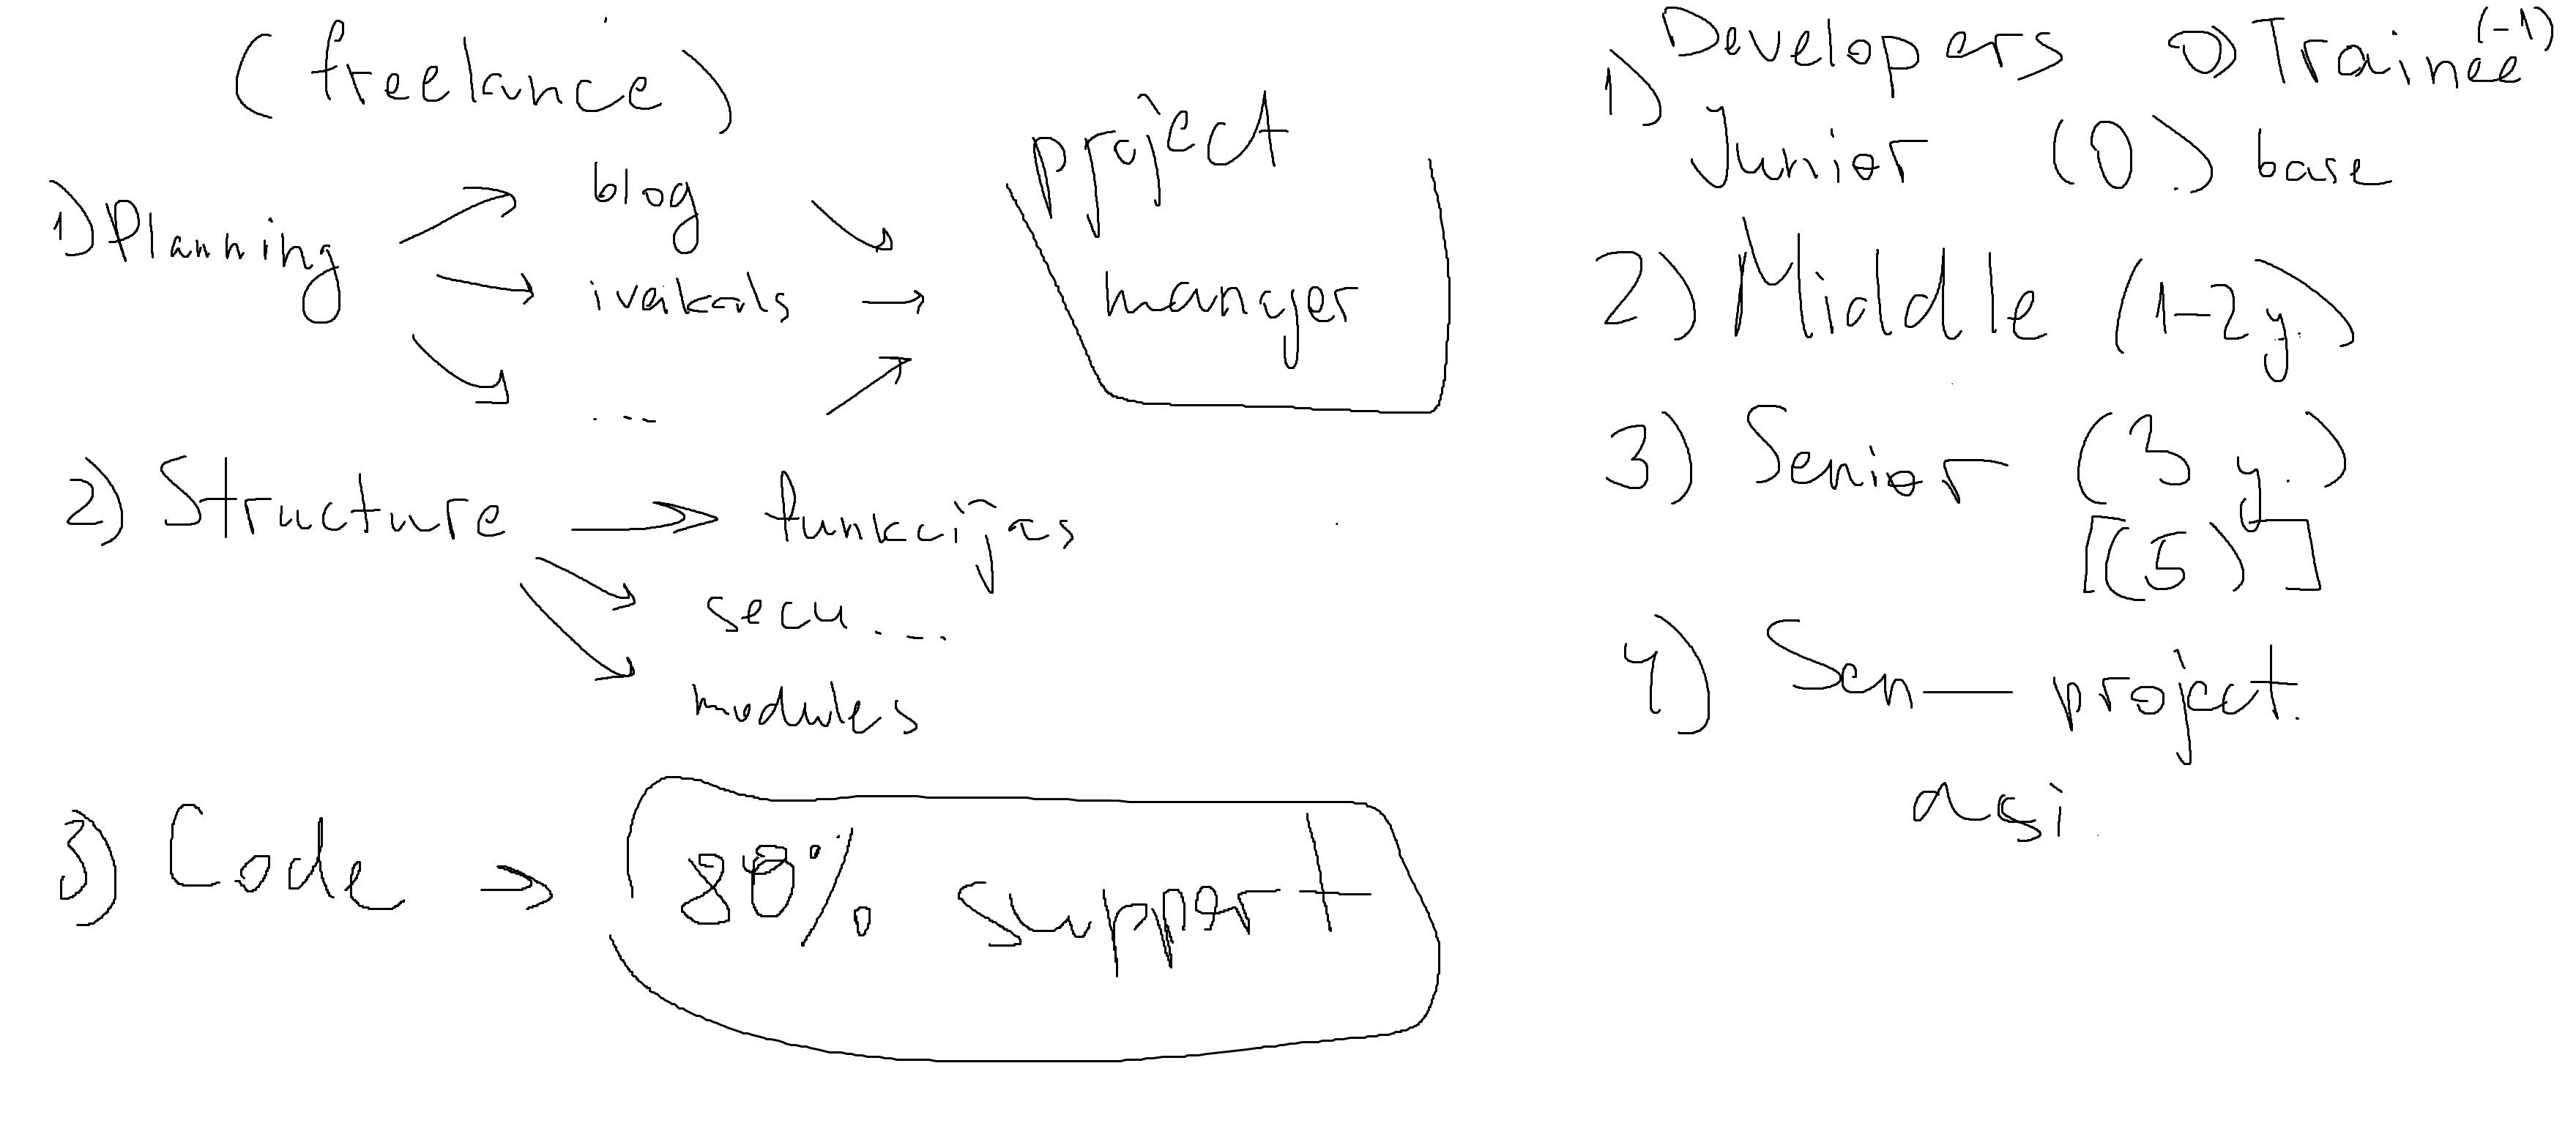 (freelance)
1) Planning
blog
iveikals
...
project
manager
2) Structure
funkcijas
secu....
modules
3) Code
80% support
Developers 0) Trainee (-1)
1) Junior (0.) base
2) Middle (1-2 y.)
3) Senior (3 y.)
[(5)]
4) Sen— project.